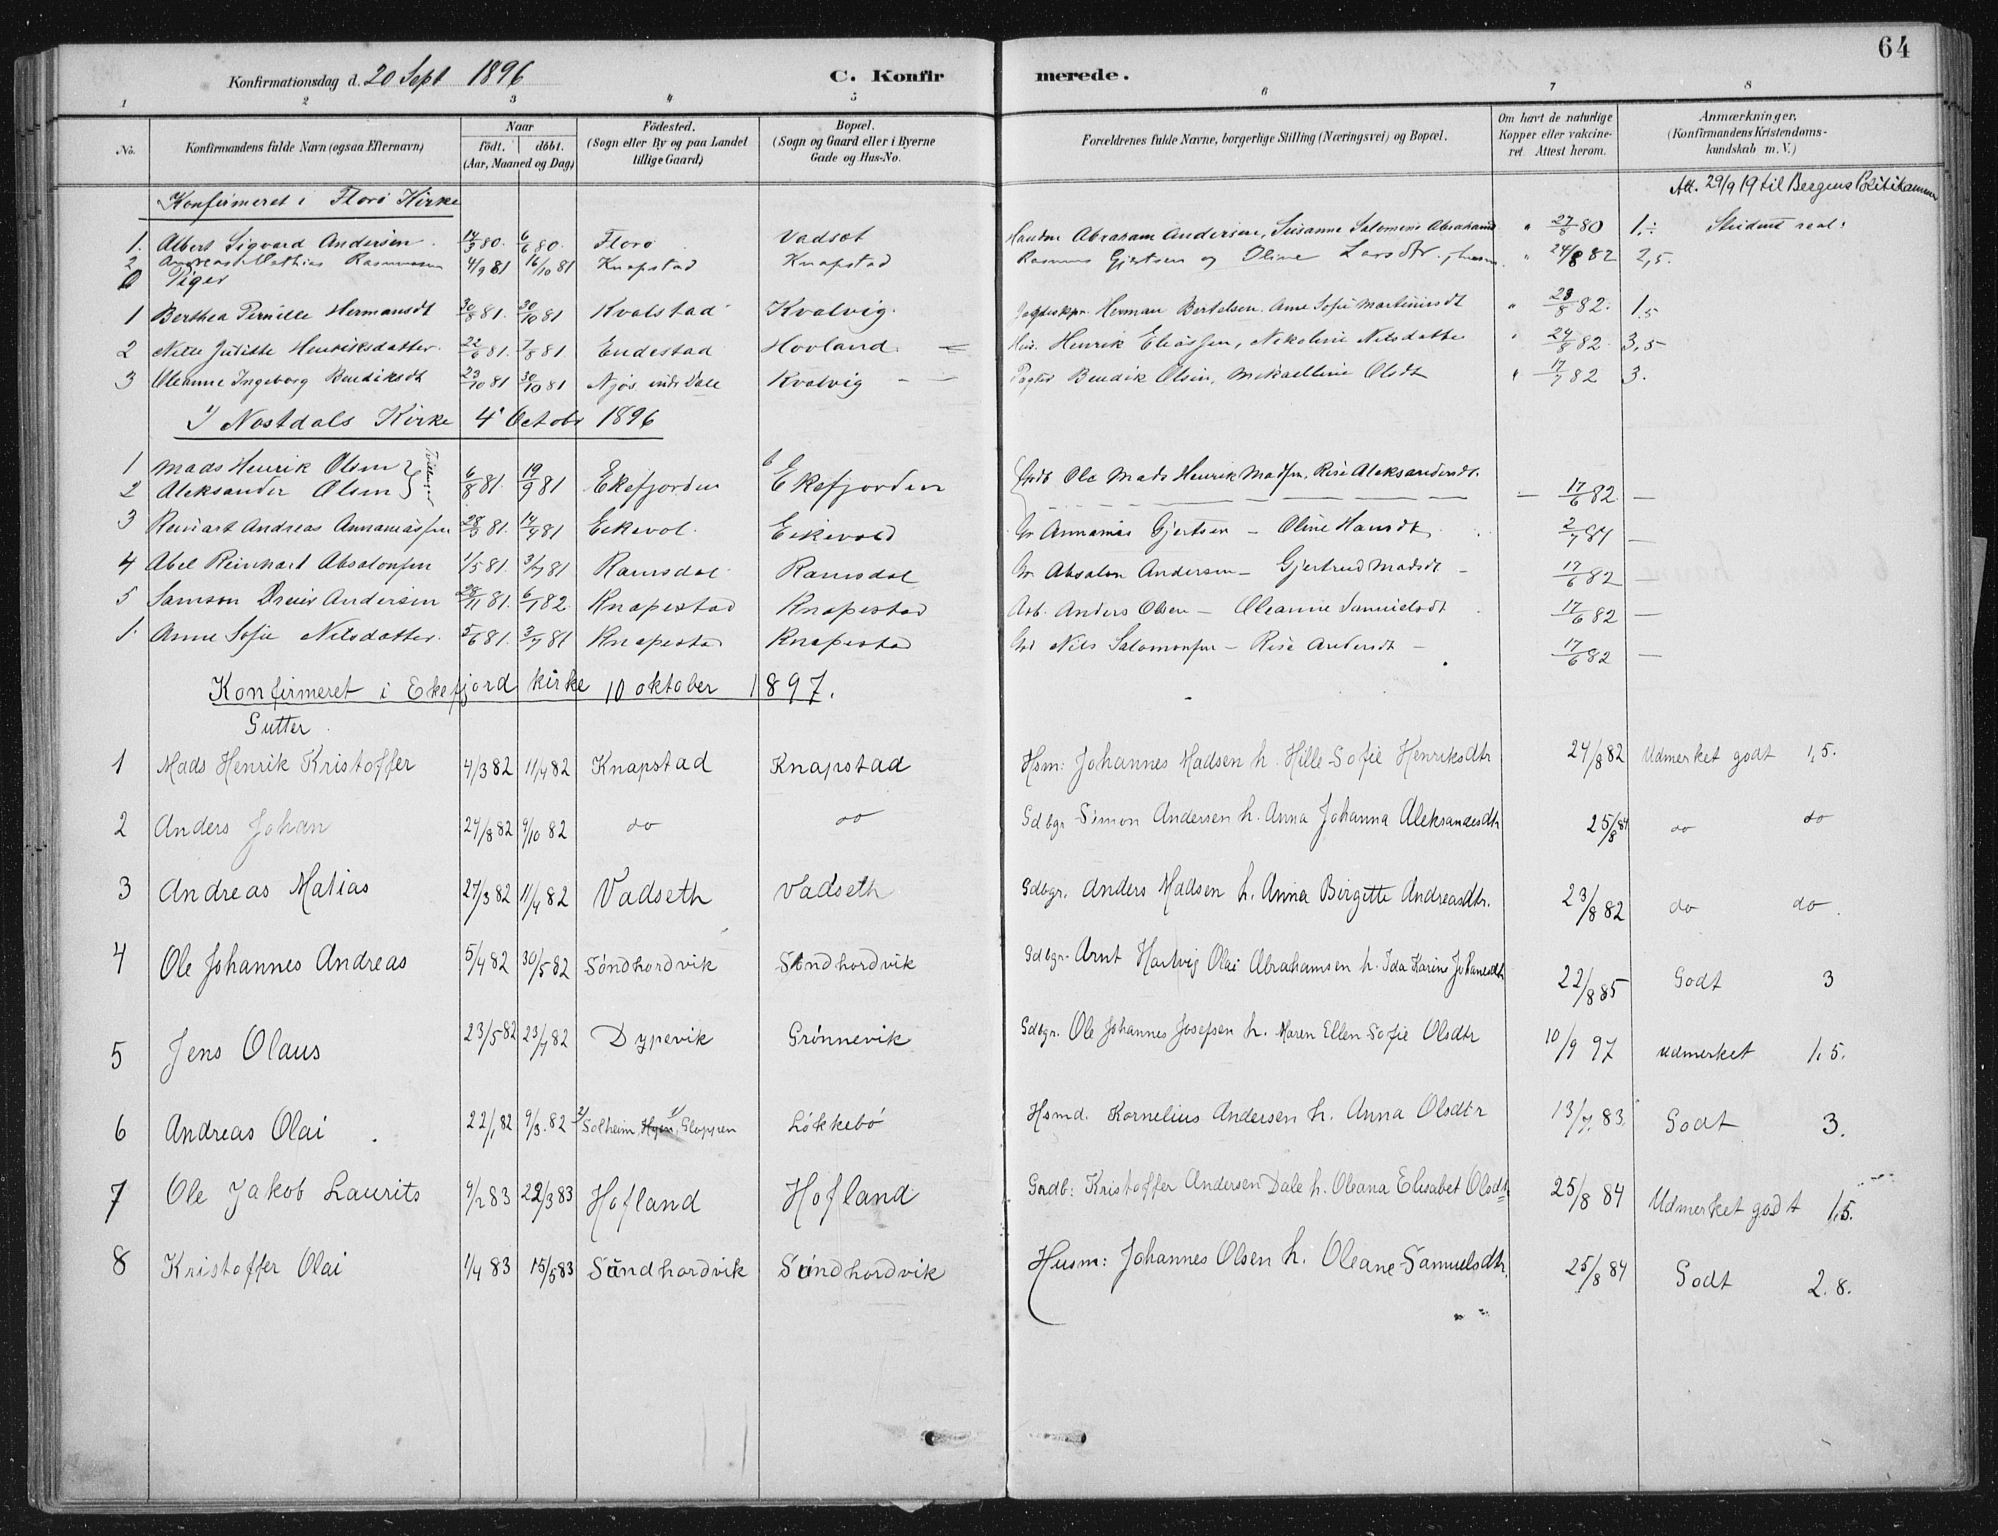 64
Konfirmationsdag d. 20 Sept 1896 C. Konfirmerede.
1 2 3 4 5 6 7 8
No. Konfirmandens fulde Navn (ogsaa Efternavn) Naar født. døbt. (Aar, Maaned og Dag) Fødested. (Sogn eller By og paa Landet tillige Gaard) Bopæl. (Sogn og Gaard eller i Byerne Gade og Hus-No. Forældrenes fulde Navne, borgerlige Stilling (Næringsvei) og Bopæl. Om havt de naturlige Kopper eller vakcineret. Attest herom. Anmærkninger, (Konfirmandens Kristendomskundskab m. V.)
Att. 29/9 19 til Bergens Politikammer
Konfirmeret i Florø Kirke
1. Albert Sigvard Andersen 14/3 80. 6/6 80. Florø Vadset Abraham Andersen, Susanne Salomine " 27/8 80 1.÷ Student real:
2 Andreas Mathias Rasmussen 4/9 81 16/10 81 Knapstad Knapstad Rasmus Gjertsen og Oline Larsdtr. " 24/8 82 2,5.
Piger
1 Berthea Pernille Hermansdt 30/8 81. 30/10 81 Kvalstad Kvalvig. Herman Bertelsen. Ane Sofie Martinusdt " 28/8 82. 1.5
2 Nille Julitte Henriksdatter. 22/6 81. 7/8 81 Endestad Hovland. Hus. Henrik Eliassen, Nikoline Nilsdatter " 24/8 82. 3,5
3 Oleanne Ingeborg Bendiksdt 23/10 81 30/10 81 Njøs indr Dale Kvalvig Bendik Olsen, Mikaelline Olsdt " 17/7 82 3.
I Nostdals Kirke 4 Octobr 1896
1 Mads Henrik Olsen } Tvillinger 6/8 81. 19/9 81 Ekefjorden Ekefjorden Ole Mads Henrik Madsen, Rise Aleksandersdt.
2 Aleksander Olsen — 17/6 82. —
3 Reinart Andreas Annaniassen 28/3 81. 14/4 81 Eikevol. Eikevold Gr Annanias Gjertsen – Oline Hansdt 2/7 84 —
4 Abel Reinhart Absalonsen 1/5 81. 3/7 81 Ramsdal Ramsdal Gr. Absalon Andersen – Gjertrud Madsdt – 17/6 82 —
5 Samson Dreier Andersen 28/11 81. 6/1 82. Knapestad Knapestad Arb. Anders Olsen – Oleanne Samuelsdt 17/6 82 —
1. Anne Sofie Nilsdatter. 5/6 81. 3/7 81 Knapestad Knapestad Nils Salomonsen – Rise Arentsdt – 17/6 82 —
Konfirmeret i Ekefjord kirke 10 oktober 1897.
Gutter
1 Mads Henrik Kristoffer 4/3 82 11/4 82 Knapstad Knapstad Hsm: Johannes Madsen h. Hille Sofie Henriksdtr 24/8 82 Udmerket godt 1,5.
2 Anders Johan 24/8 82 9/10 82 do do Gdbgr Simon Andersen h. Anna Johanna Aleksandesdtr 25/8 84 do do
3 Andreas Matias 27/3 82 11/4 82 Vadseth Vadseth Gdbgr. Anders Madsen h. Anna Birgitte Andreasdtr. 23/8 82 do do.
4 Ole Johannes Andreas 5/4 82 30/5 82 Søndhordvik Søndhordvik Gdbgr. Arnt Hartvig Olai Abrahamsen h. Ida Karine Johanesdtr 22/8 85 Godt 3
5 Jens Olaus 23/5 82 23/7 82 Dypevik Grønnevik Gdbgr. Ole Johannes Josefsen h. Maren Ellen Sofie Olsdtr 10/9 97 Udmerket 1,5.
6 Andreas Olai. 22/1 82 9/3. 82 Solheim, Hyen, Gloppen Løkkebø Hsmd. Kornelius Andersen h. Anna Olsdtr 13/7. 83. Godt 3.
7 Ole Jakob Laurits 9/2 83 22/3 83 Hofland Hofland Grdb: Kristoffer Andersen Dale h. Oleana Elisabet Olsdtr 25/8 84 Udmerket godt 1,5.
8 Kristoffer Olai 1/4 83 15/5 83 Søndhordvik Søndhordvik Husm: Johannes Olsen h. Oleane Samuelsdtr. 25/8 84 Godt 2.8.